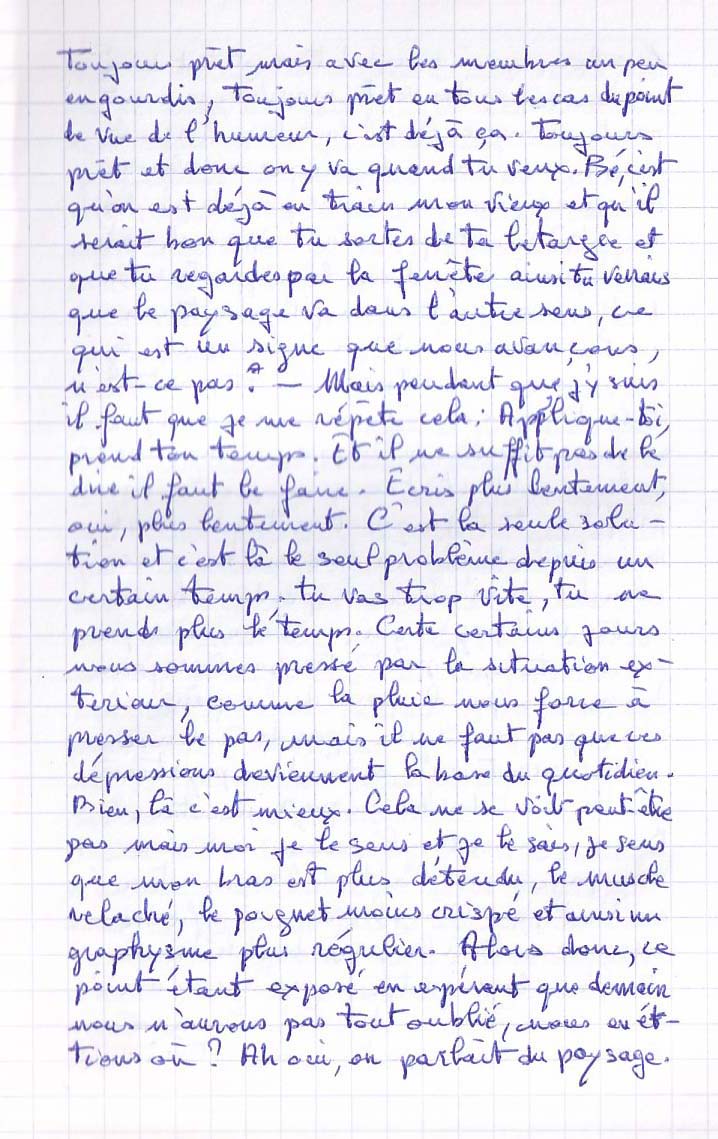 Toujours prêt mais avec les membres un peu
engourdis, toujours prêt en tous les cas du point
de vue de l'humeur, c'est déjà ça. Toujours
prêt et donc on y va quand tu veux. Bé, c'est
qu'on est déjà en train mon vieux et qu'il
serait bon que tu sortes de ta letargée et
que tu regardes par la fenête ainsi tu verrais
que le paysage va dans l'autre sens, ce
qui est un signe que nous avançons,
n'est-ce pas ? — Mais pendant que j'y suis
il faut que je me répète cela : Applique-toi,
prend ton temps. Et il ne suffit pas de le
dire il faut le faire. Ecris plus lentement,
oui, plus lentement. C'est la seule solu-
tion et c'est là le seul problème depuis un
certain temps, tu vas trop vite, tu ne
prends plus le temps. Certe certains jours
nous sommes pressé par la situation ex-
terieur, comme la pluie nous force à
presser le pas, mais il ne faut pas que ces
dépressions deviennent la base du quotidien.
Bien, là c'est mieux. Cela ne se voit peut-être
pas mais moi je le sens et je le sais, je sens
que mon bras est plus détendu, le muscle
relaché, le poignet moins crispé et ainsi un
graphysme plus régulier. Alors donc, ce
point étant exposé en espérant que demain
nous n'aurons pas tout oublié, nous en ét-
tions où ? Ah oui, on parlait du paysage.